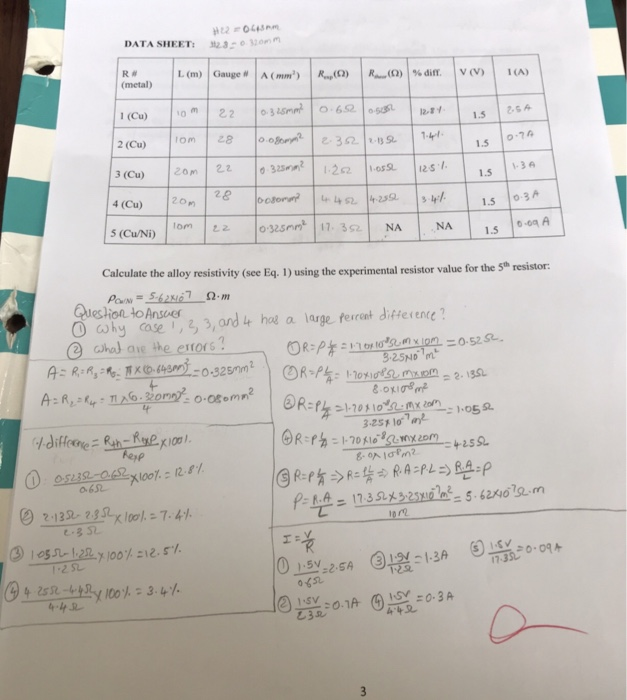 #22 = 0.643mm
DATA SHEET: #28 = 0.320mm
R # (metal) L (m) Gauge # A (mm²) R (Ω) R (Ω) % diff. V (V) I (A)
1 (Cu) 10 m 22 0.325mm² 0.6Ω 0.52Ω 12.8% 1.5 2.5A
2 (Cu) 10m 28 0.080mm² 2.3Ω 2.13Ω 7.4% 1.5 0.7A
3 (Cu) 20m 22 0.325mm² 1.2Ω 1.05Ω 12.5% 1.5 1.3A
4 (Cu) 20m 28 0.080mm² 4.4Ω 4.25Ω 3.4% 1.5 0.3A
5 (Cu/Ni) 10m 22 0.325mm² 17.3Ω NA NA 1.5 0.09A
Calculate the alloy resistivity (see Eq. 1) using the experimental resistor value for the 5th resistor:
ρCu/Ni = 5.62x10⁻⁷ Ω·m
Question to Answer
① Why case 1, 2, 3, and 4 has a large percent difference?
② what are the errors?
A = R₁=R₃=R₅= π×(0.643mm)²/4 = 0.325mm²
A = R₂=R₄ = π×(0.320mm)²/4 = 0.080mm²
% difference = Rth - Rexp / Rexp ×100%
① 0.523Ω-0.6Ω / 0.6Ω ×100% = 12.8%
② 2.13Ω-2.3Ω / 2.3Ω ×100% = 7.4%
③ 1.05Ω-1.2Ω / 1.2Ω ×100% = 12.5%
④ 4.25Ω-4.4Ω / 4.4Ω ×100% = 3.4%
① R=ρL/A = 1.70×10⁻⁸Ω.m×10m / 3.25×10⁻⁷m² = 0.52Ω.
② R=ρL/A = 1.70×10⁻⁸Ω.m×10m / 8.0×10⁻⁸m² = 2.13Ω
③ R=ρL/A = 1.70×10⁻⁸Ω.m×20m / 3.25×10⁻⁷m² = 1.05Ω
④ R=ρL/A = 1.70×10⁻⁸Ω.m×20m / 8.0×10⁻⁸m² = 4.25Ω
⑤ R=ρL/A => R=ρL/A => R.A=ρL => R.A/L = ρ
ρ = R.A/L = 17.3Ω×3.25×10⁻⁷m² / 10m = 5.62×10⁻⁷Ω.m
I = V/R
① 1.5V/0.6Ω = 2.5A ③ 1.5V/1.2Ω = 1.3A ⑤ 1.5V/17.3Ω = 0.09A
② 1.5V/2.3Ω = 0.7A ④ 1.5V/4.4Ω = 0.3A
3